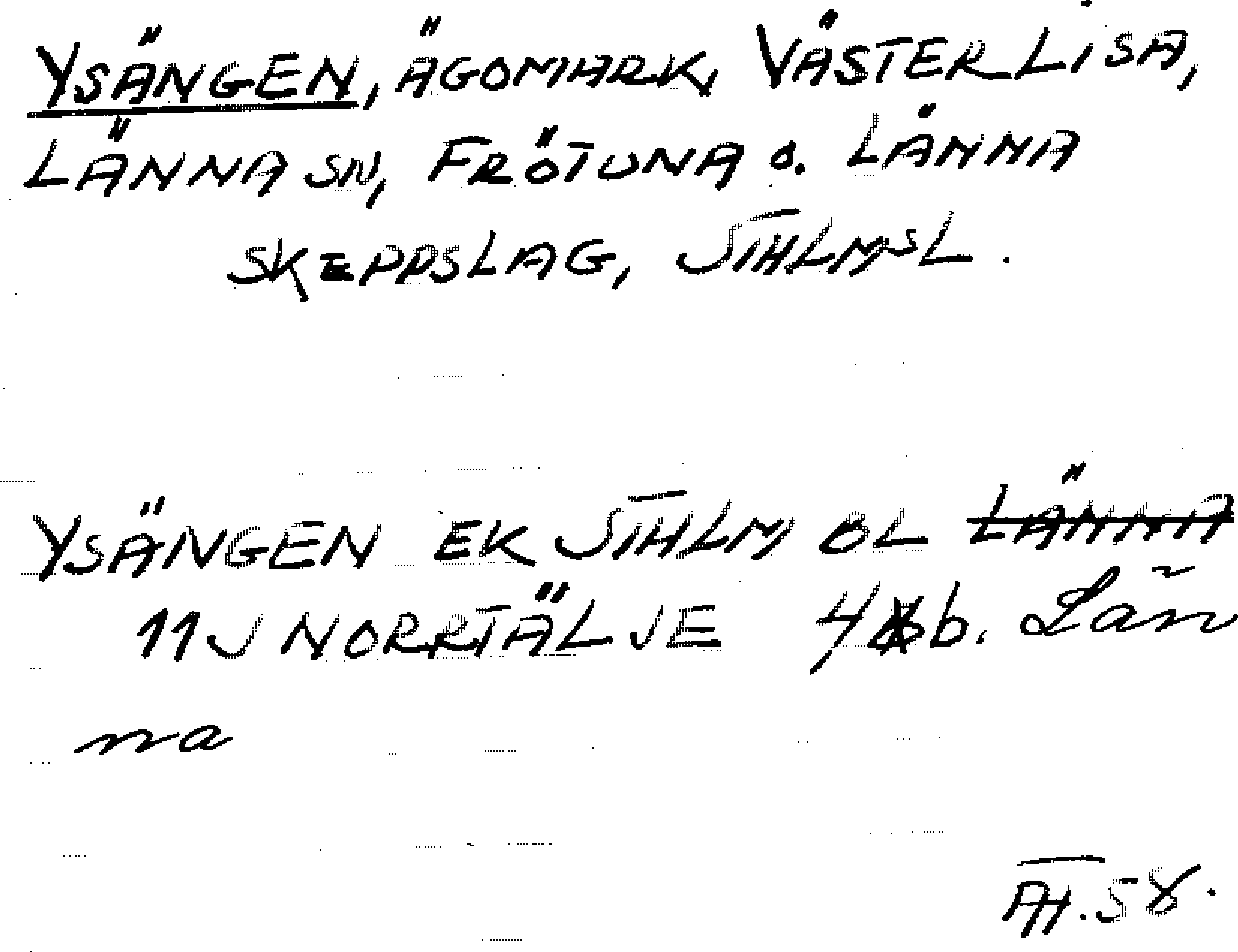 YSÄNGEN, ÄGOMARK, VÄSTERLISA,
LÄNNA SN, FRÖTUNA O. LÄNNA
SKEPPSLAG, STHLMSL.
YSÄNGEN EK STHLM BL LÄNNA
11J NORRTÄLJE 4 b. Län
na
TH.58.